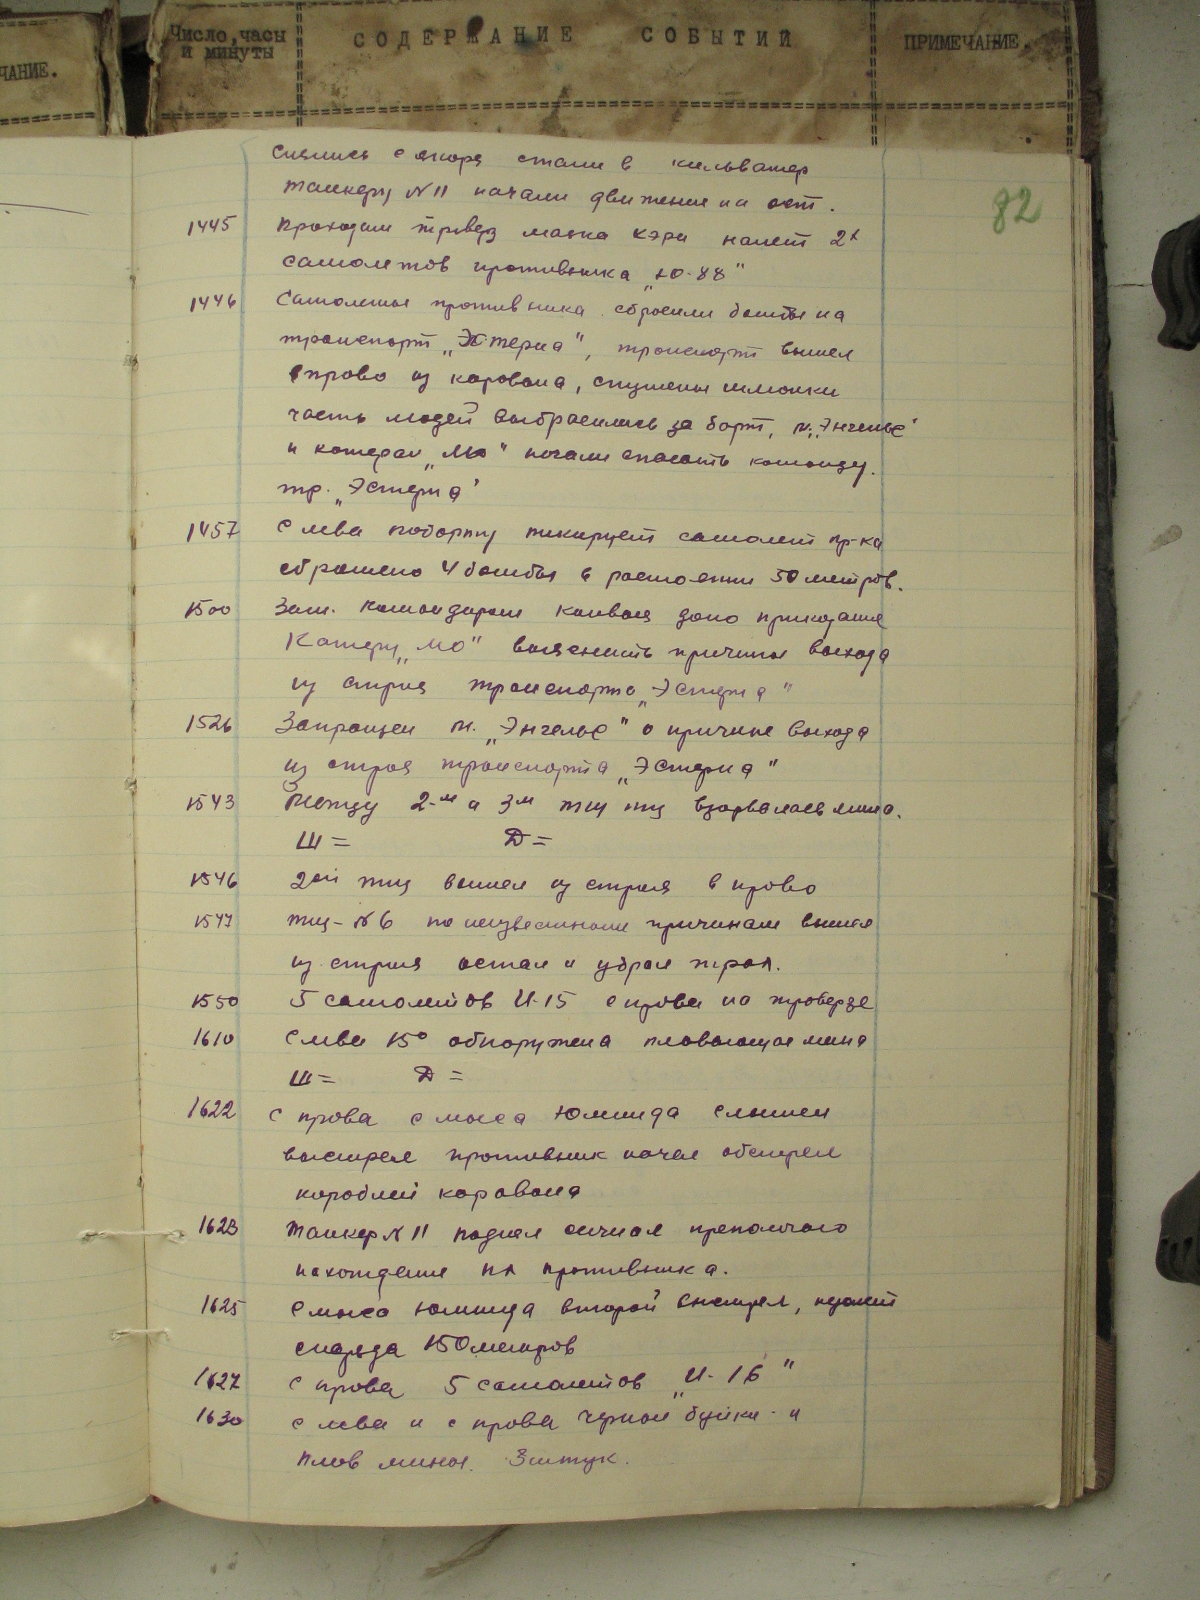 Число, часы
и минуты
СОДЕРЖАНИЕ СОБЫТИЙ
ПРИМЕЧАНИЕ.
ЧАНИЕ.
82
Снялись с якоря стали в кильватер
танкеру №11 начали движение на ост.
1445 Проходим траверз маяка Кэри налет 2х
самолетов противника „Ю-88"
1446 Самолеты противника сбросили бомбы на
транспорт „Эстерна", транспорт вышел
вправо из каравана, спущены шлюпки
часть людей выбросились за борт, м. „Энгельс"
и катерам „МО" начали спасать команду.
тр. „Эстерна"
1457 Слева по борту пикирует самолет пр-ка
сброшено 4 бомбы в растоянии 50 метров.
1500 Зам. командиром конвоя дано приказание
Катеру „МО" выеснить причины выхода
из строя транспорта „Эстерна"
1526 Запрошен м. „Энгельс" о причине выхода
из строя транспорта „Эстерна"
1543 Между 2-м и 3м тщ взорвалась мина.
Ш= Д=
1546 2ой тщ вышел из строя в право
1547 тщ-№6 по неизвестным причинам вышел
из строя остал и убрал трал.
1550 5 самолетов И-15 справа на траверзе
1610 Слева 15° обнаружена плавающая мина
Ш= Д=
1622 с права с мыса Юминда слышен
выстрел противник начал обстрел
кораблей каравана
1623 Танкер №11 поднял сигнал
нахождение ПЛ противника.
1625 с мыса Юминда второй выстрел, недолет
снаряда 150 метров
1627 с права 5 самолетов „И-16"
1630 слева и с права черной буйки и
плав мины. 3 штук.